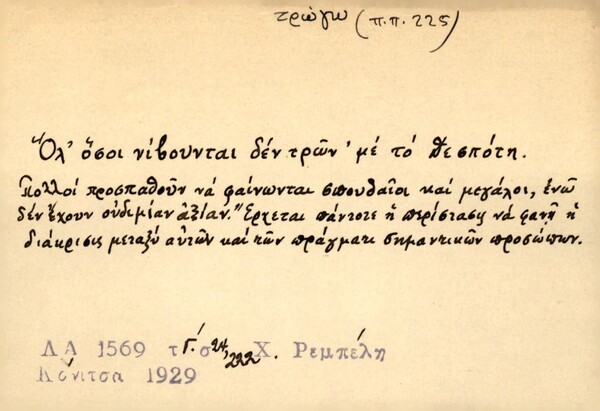 τρώγω (π.π. 225)
Ὅλ' ὅσοι νίβουνται δέν τρῶν' μέ τό Δεσπότη.
Πολλοί προσπαθοῦν νά φαίνωνται σπουδαῖοι καί μεγάλοι, ἐνῶ
δέν ἔχουν οὐδεμίαν ἀξίαν. Ἔρχεται πάντοτε ἡ περίστασις νά φανῇ ἡ
διάκρισις μεταξύ αὐτῶν καί τῶν πράγματι σημαντικῶν προσώπων.
ΛΑ 1569 τ Γ΄. σ 24, 222. Χ. Ρεμπέλη
Κόνιτσα 1929